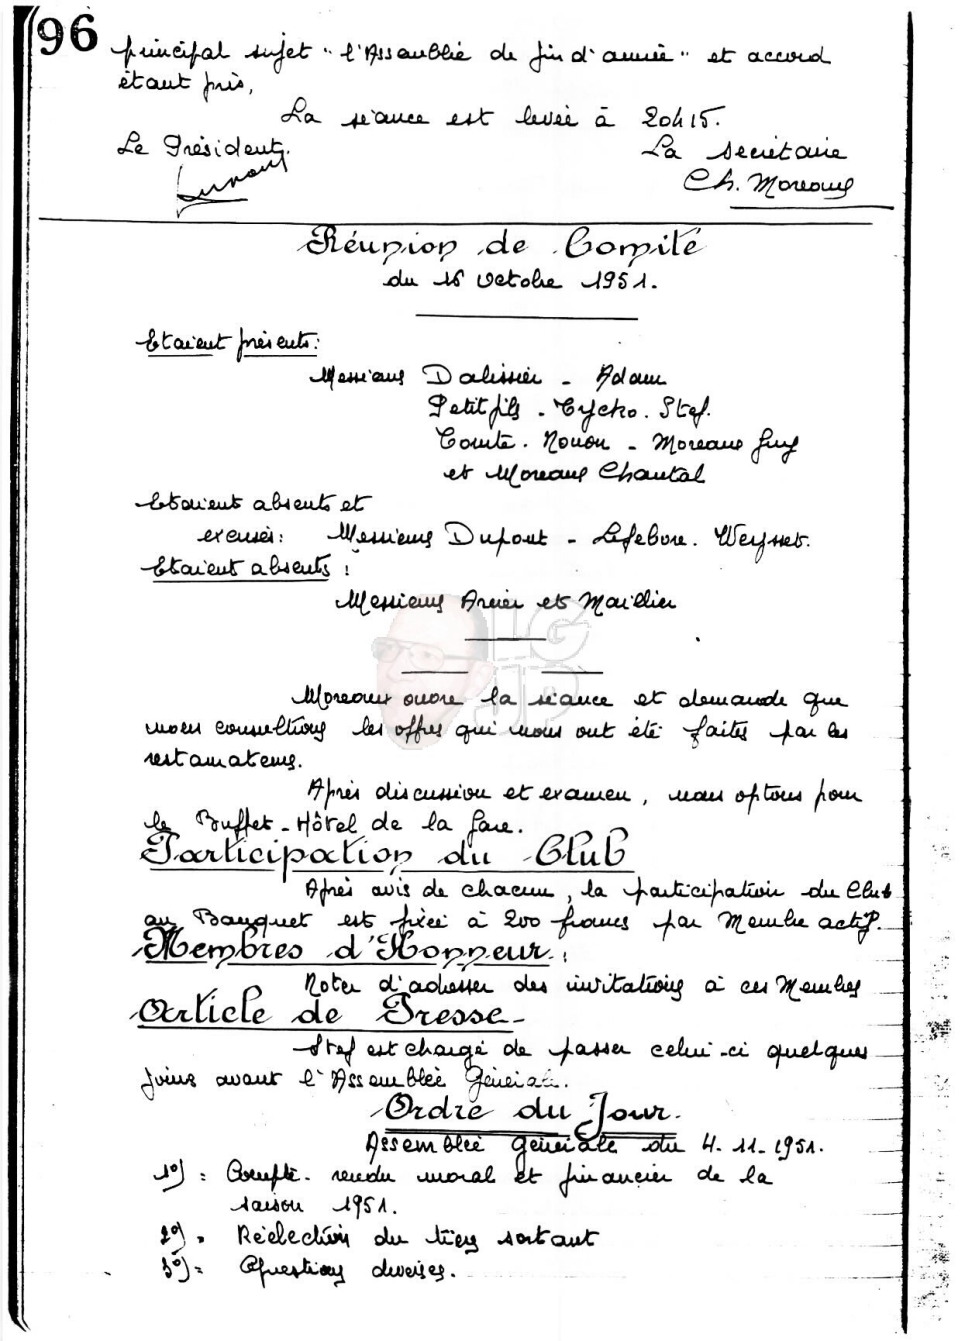 96
principal sujet "l'Assemblée de fin d'année" et accord
étant pris,
La séance est levée à 20h15.
Le Président. La Secrétaire
Ch. Moreaux
Réunion de Comité
du 16 Octobre 1951.
Etaient présents:
Messieurs Dalissier - Adam
Petitfils - Tycho. Stef.
Comte. Nouon - Moreaux Guy
et Moreaux Chantal
Etaient absents et
excusés: Messieurs Dupont - Lefebvre. Weysset.
Etaient absents:
Messieurs Arcier et Maillier
LG
JP
Moreaux ouvre la séance et demande que
nous consultions les offres qui nous ont été faites par les
restaurateurs.
Après discussion et examen, nous optons pour
le Buffet-Hôtel de la Gare.
Participation du Club
Après avis de chacun, la participation du Club
au Banquet est fixée à 200 francs par Membre actif.
Membres d'Honneur:
Noter d'adresser des invitations à ces Membres
Article de Presse-
Stef est chargé de passer celui-ci quelques
jours avant l'Assemblée Générale.
Ordre du Jour.
Assemblée Générale du 4-11-1951.
1°) = Compte-rendu moral et financier de la
saison 1951.
2°) = Réélection du tiers sortant
3°) = Questions diverses.